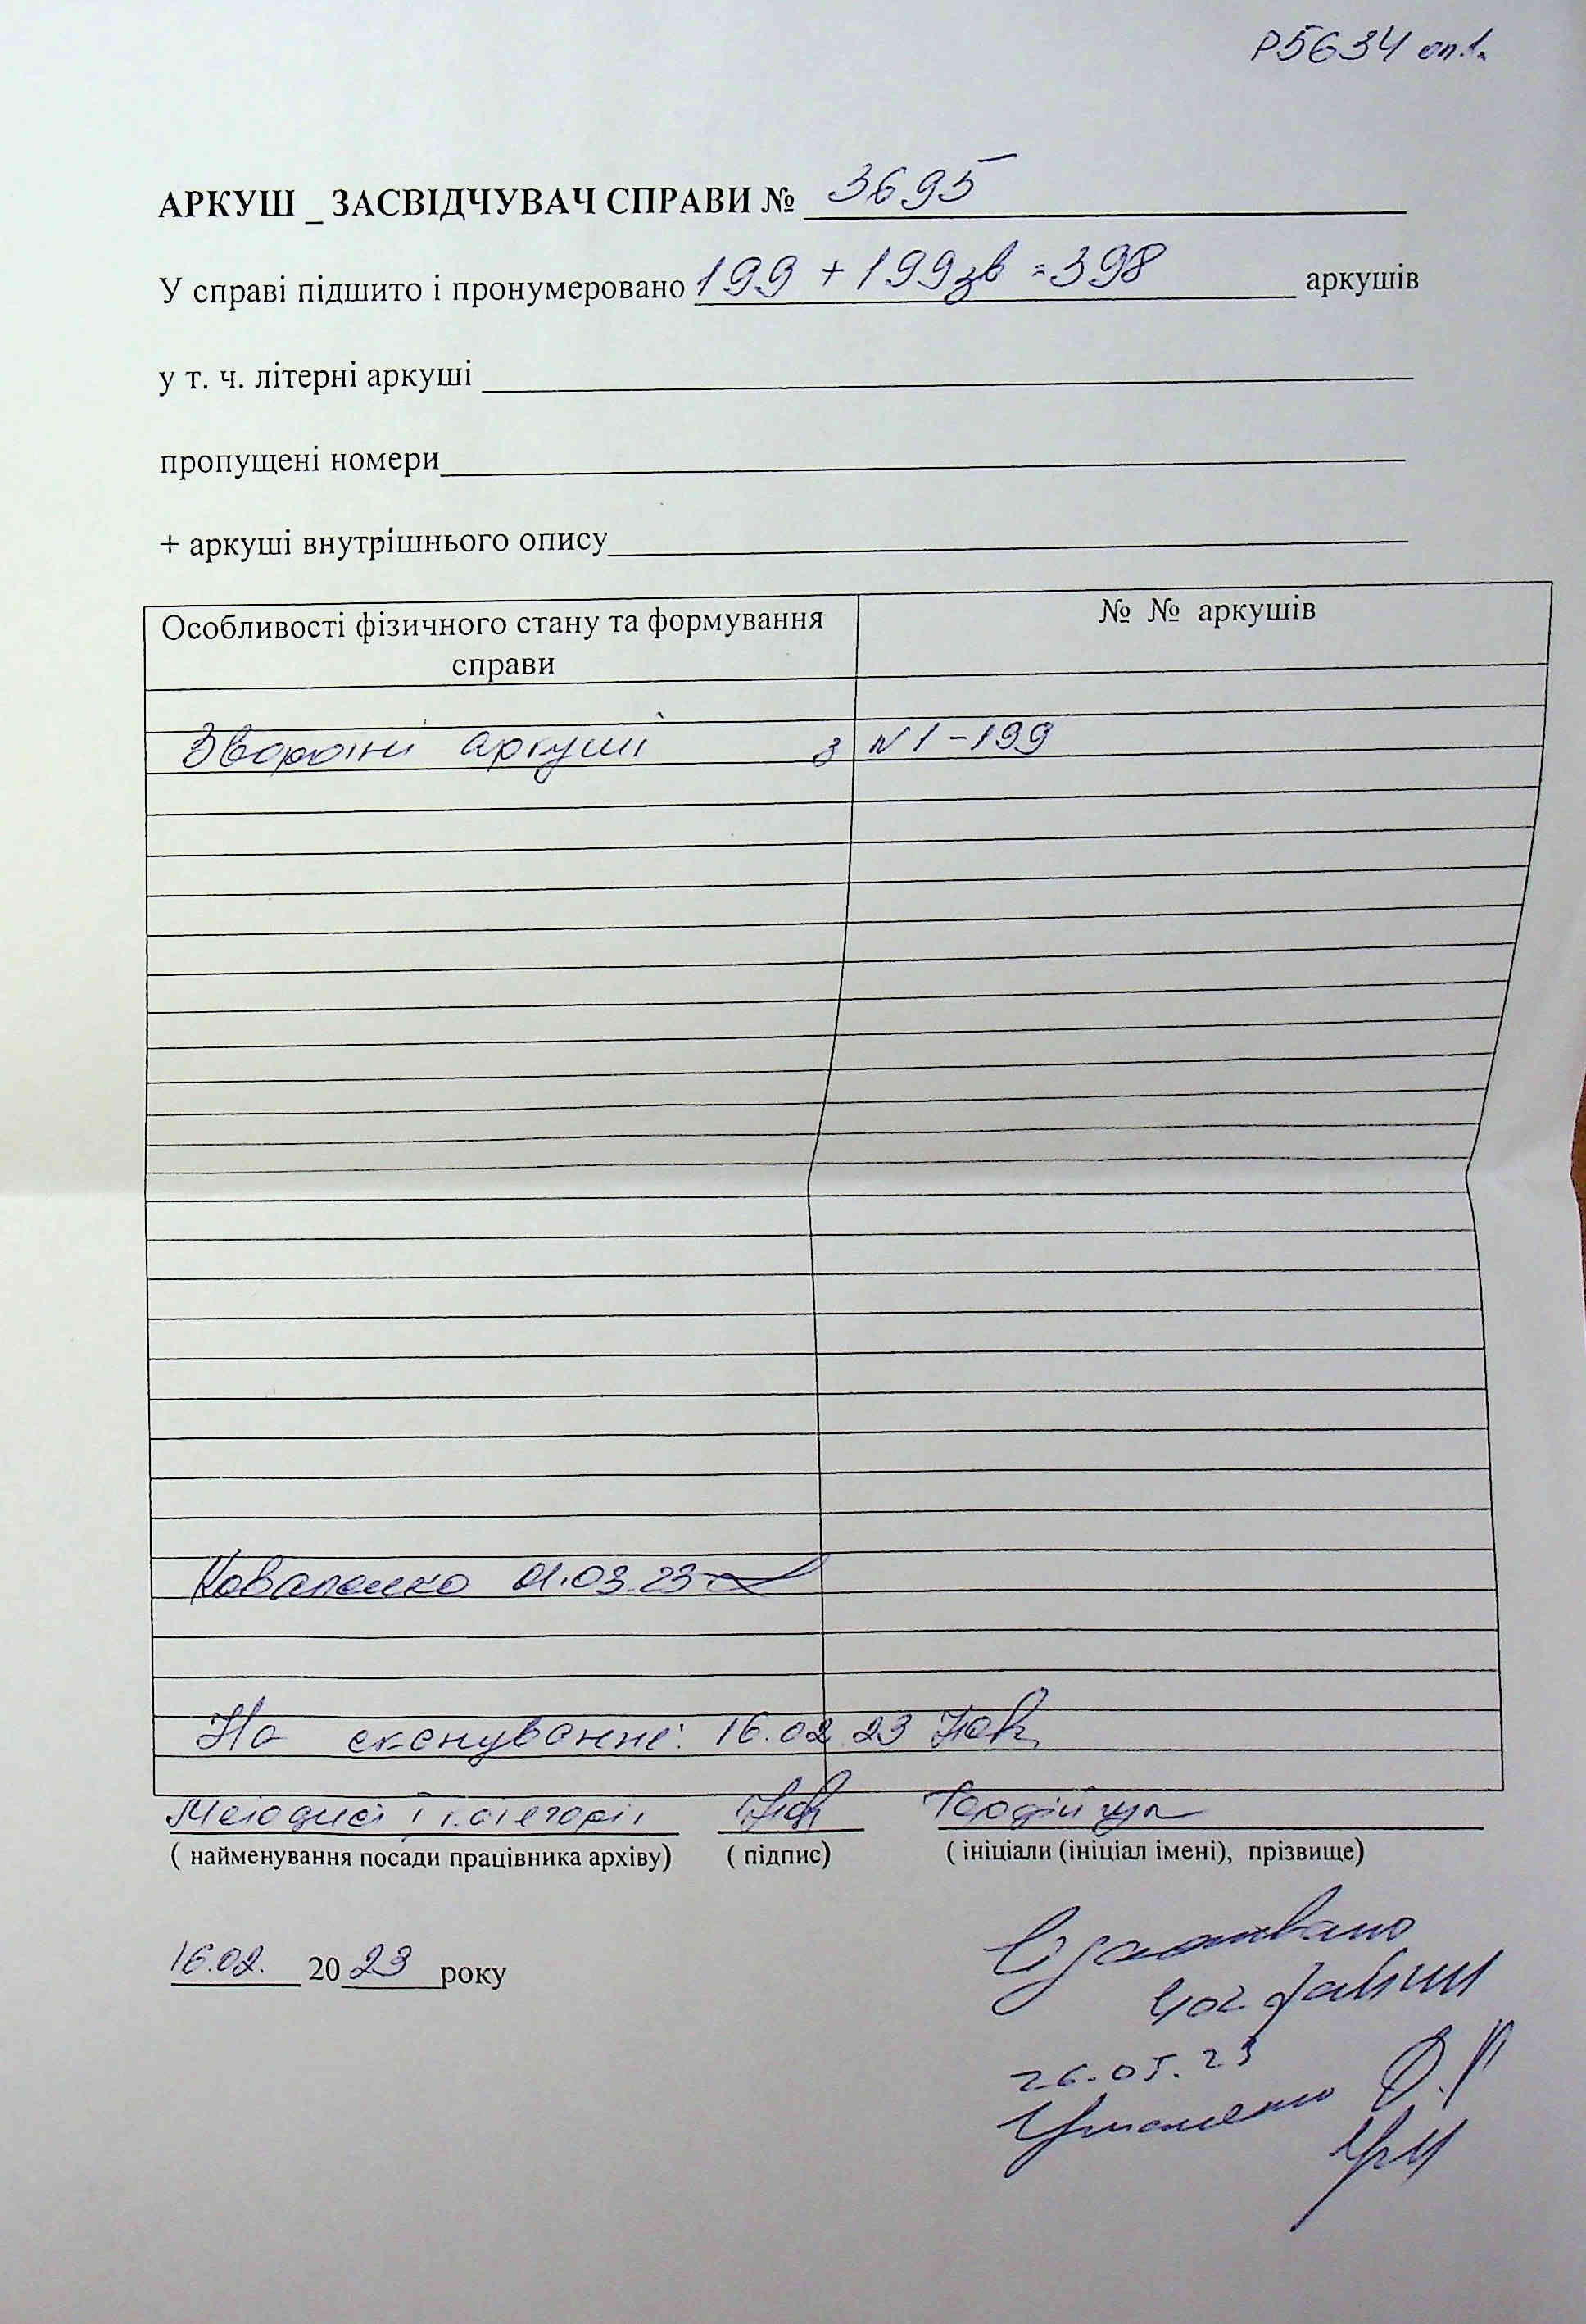 Р5634 оп.1.
АРКУШ _ ЗАСВІДЧУВАЧ СПРАВИ № 3695
У справі підшито і пронумеровано 199 + 199зв = 398 аркушів
у т. ч. літерні аркуші
пропущені номери
+ аркуші внутрішнього опису
Особливості фізичного стану та формування № № аркушів
справи
Зворотні аркуші з №1-199
Коваленко 01.03.23
На сканування: 16.02.23
Методист І категорії Гордійчук
( найменування посади працівника архіву) ( підпис) ( ініціали (ініціал імені), прізвище)
16.02. 2023 року
Відскановано
402
26.05.23